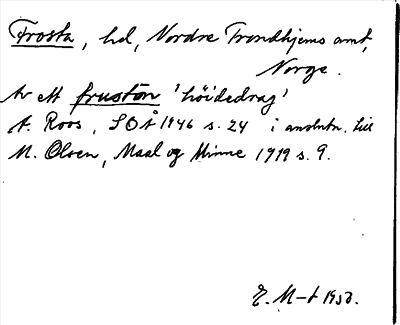 Frosta, hd, Nordre Trondhjems amt,
Norge.
Av ett frustōn 'höidedrag'
A. Roos, SOÅ 1946 s. 24 i anslutn. till
M. Olsen, Maal og Minne 1919 s. 9.
E. M-t 1950.